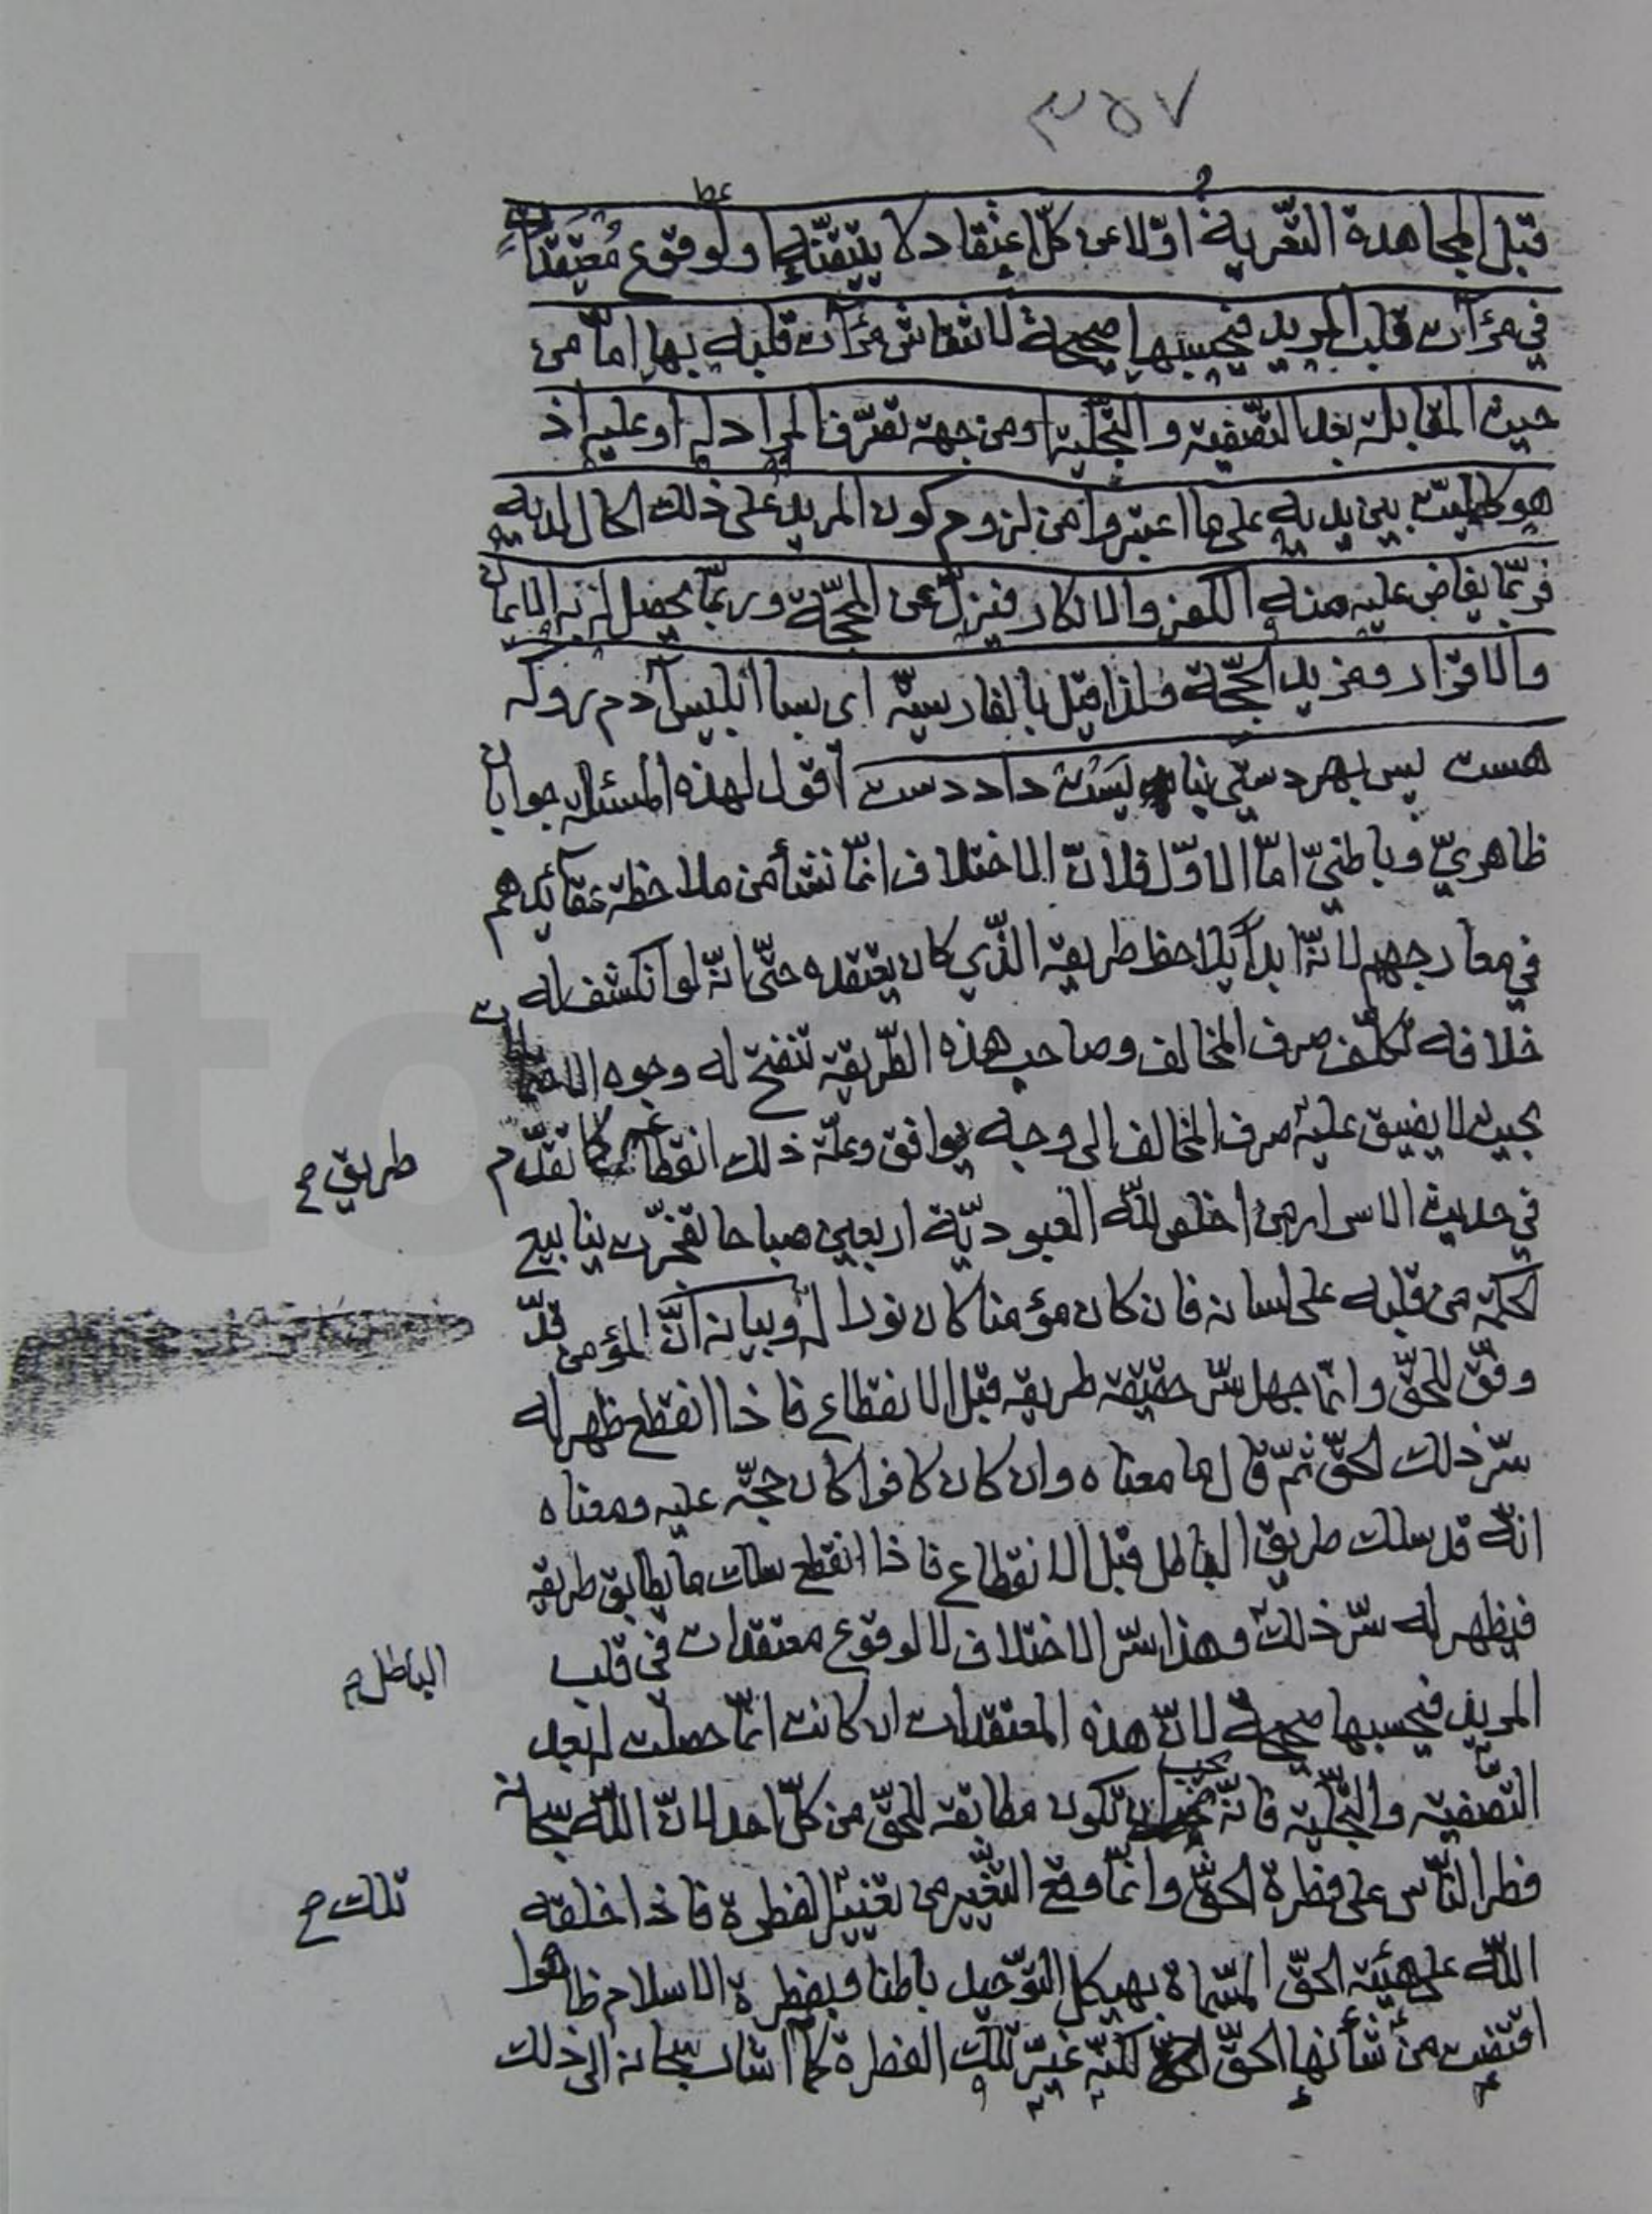 ٣٥٧
قبل المجاهدة التعرية اوّلا عن كلّ اعتقاد لا يتيقّنه او لوقوع معتقدات
في مرآت قلب المريد فيحسبها صحيحة لانتقاش مرآت قلبه بها امّا من
حيث المقابلة بعد التّصفية والتّجلية او من جهة تصرّف المراد له او عليه اذ
هو كالميّت بين يديه على ما اعتبروا من لزوم كون المريد على ذلك الحال لمديه
فربّما يفاض عليه منه الكفر والانكار فيزلّ عن المحجّة وربّما يحصل له به الايمان
والاقرار ومزيد الحجّة فلذا قيل بالفارسيّة اى بسا ابليس آدم رو كه
هست پس بهر دستى نبايست داد دست اقول لهذه المسئلة جوابان
ظاهريّ وباطنيّ امّا الاوّل فلانّ الاختلاف انّما نشأ من ملاحظة عقائدهم
في معارجهم لانّه ابدا يلاحظ طريقه الّذي كان يعتقده حتّى انّه لو انكشف له
خلافه تكلّف صرف المخالف وصاحب هذه الطّريقة تنفتح له وجوه
بحيث لا يضيق عليه صرف المخالف الى وجه يوافق وعلّة ذلك انقطاعه كما تقدّم
طريق ح
في حديث الاسرار من اخلص للّه العبوديّة اربعين صباحا تفجّرت ينابيع
الحكمة من قلبه على لسانه فان كان مؤمنا كان نورا له وبيانه انّ المؤمن قد
وفّق للحقّ وانّما جهل سرّ حقيقة طريقه قبل الانقطاع فاذا انقطع ظهر له
سرّ ذلك الحقّ ثمّ قال ما معناه وان كان كافرا كان حجّة عليه ومعناه
انّه قد سلك طريق الباطل قبل الانقطاع فاذا انقطع سلك ما يطابق طريقه
فيظهر له سرّ ذلك وهذا سرّ الاختلاف لا لوقوع معتقدات في قلب
الباطل ح
المريد فيحسبها صحيحة لانّ هذه المعتقدات ان كانت انّما حصلت له بعد
التّصفية والتّجلية فانّه يجب ان تكون مطابقة للحقّ من كلّ احد لانّ اللّه سبحانه
فطر النّاس على فطرة الحقّ وانّما وقع التّغيير من تغيير الفطرة فاذا خلقه
تلك ح
اللّه على هيئة الحقّ المسمّاة بهيكل التّوحيد باطنا وبفطرة الاسلام ظاهرا
اقتضت من شأنها الحقّ لكنّه غيّر تلك الفطرة كما اشار سبحانه الى ذلك